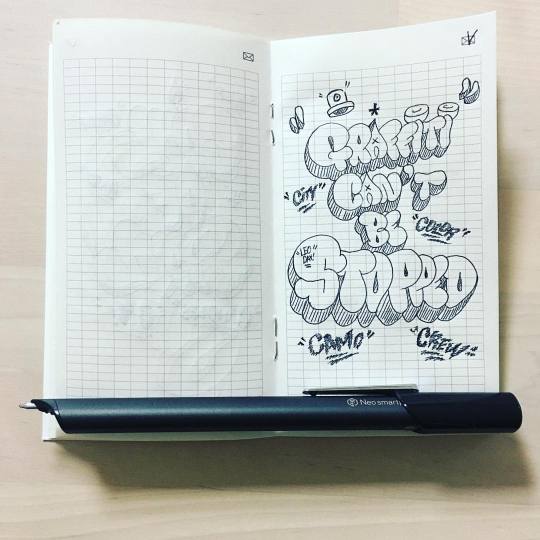 GRAFFITI
"CITY" CAN'T
BE "COLOR"
"LEO
STOPPED
"CAMO" "CREW"
Neo smart